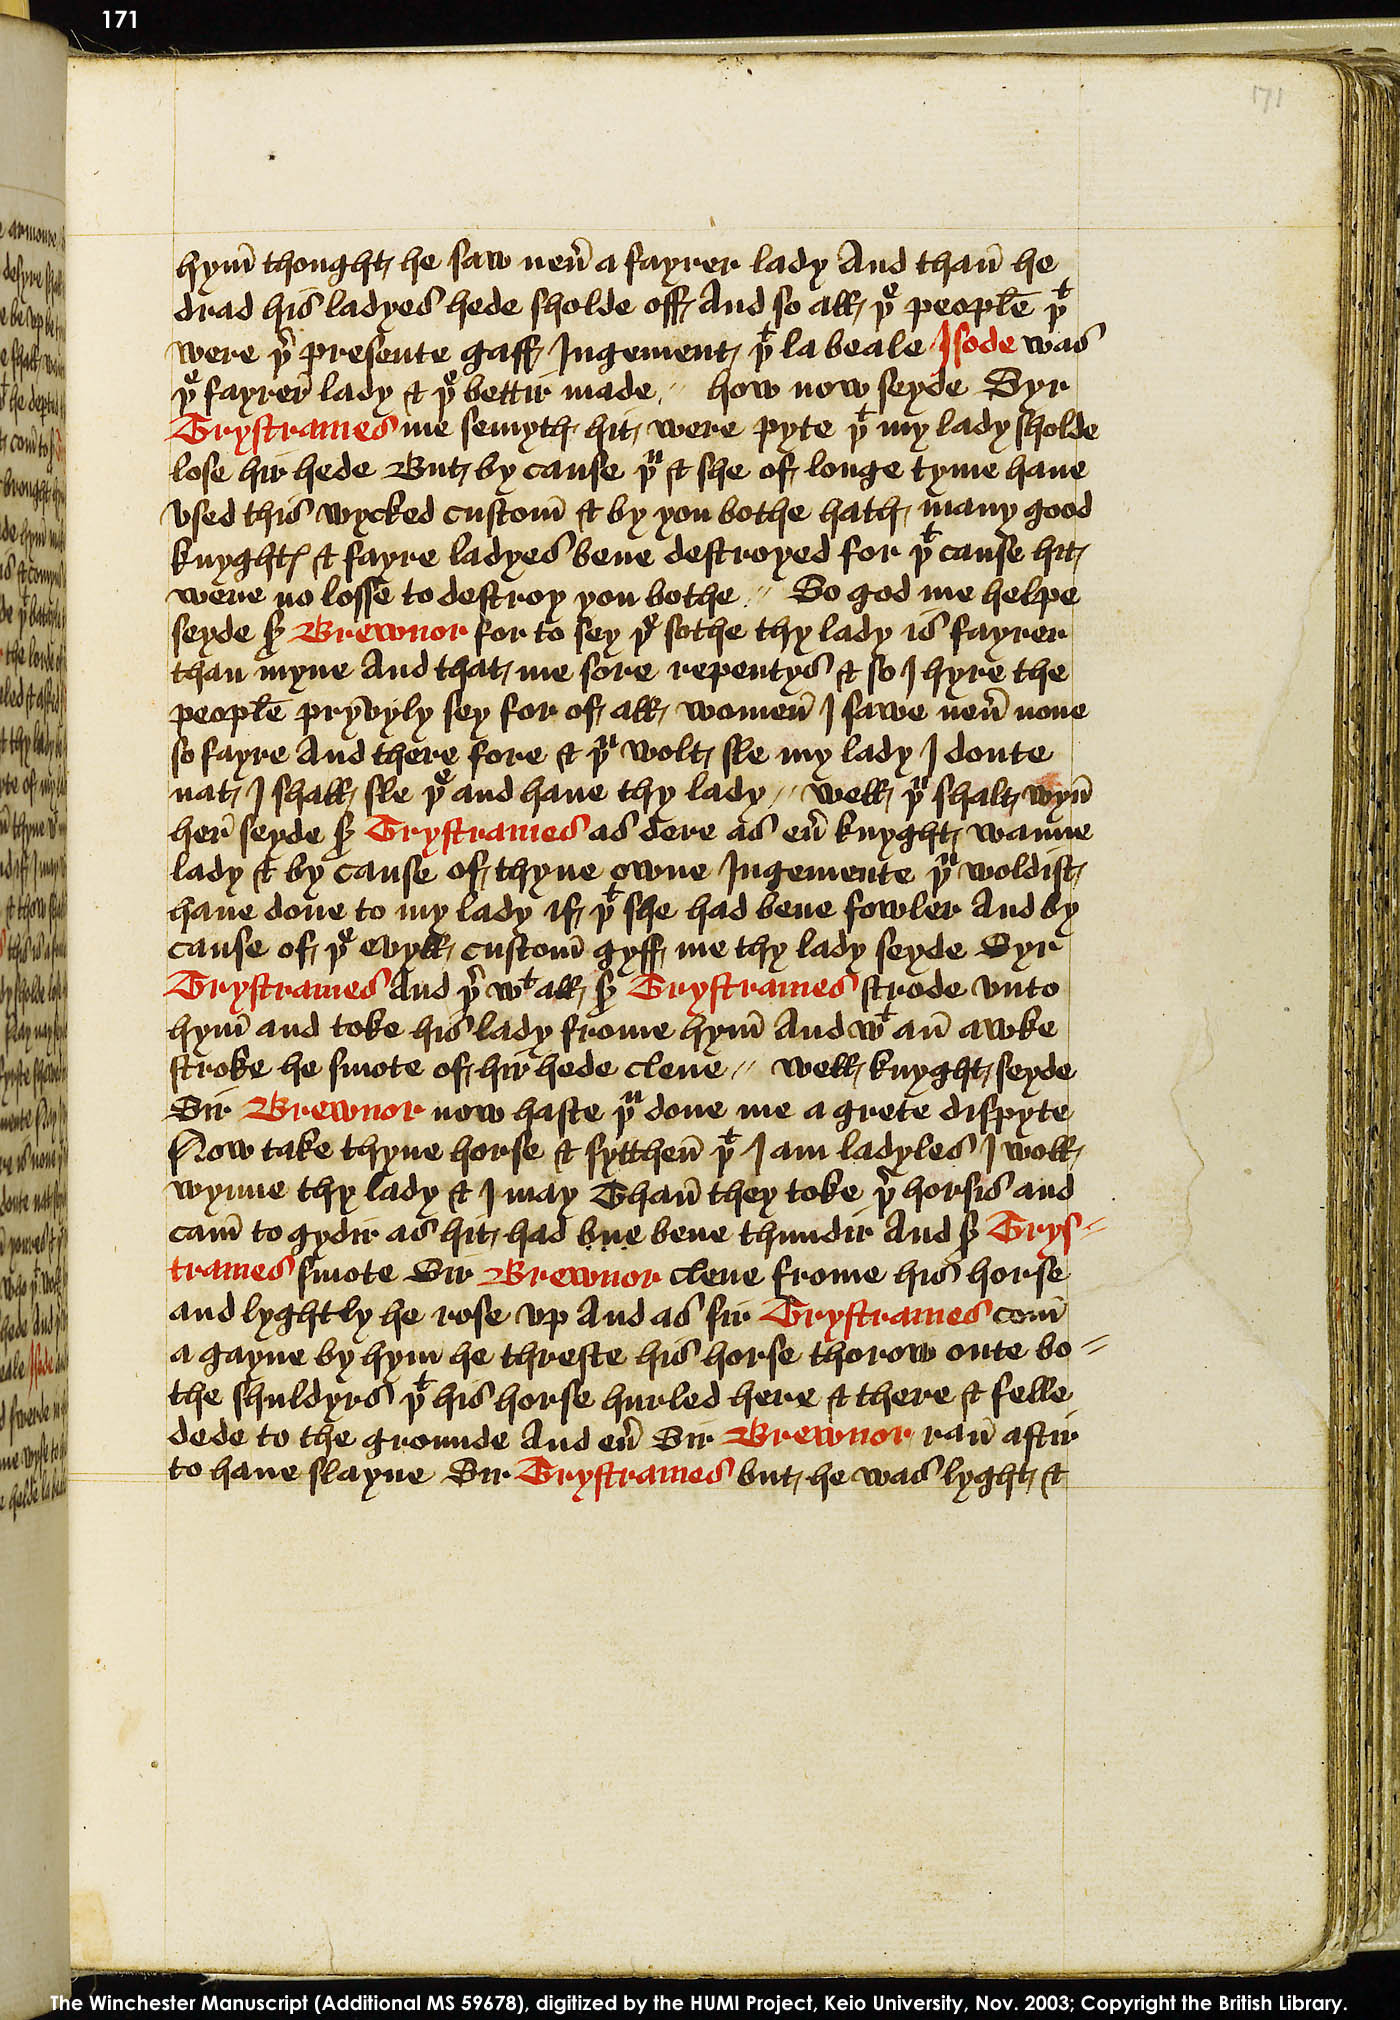 171
171
hym̄ thought he saw neū a fayrer lady And thañ he
drad his ladyes hede sholde off And so all þͤ people þᵗ
were þʳ presente gaff Jugement þᵗ la beale Isode was
þͤ fayrer lady & þͤ bettir made // how now seyde Syr
Trystrames me semyth hit were pyte þᵗ my lady sholde
lose hir hede But by cause þᵘ & she of longe tyme haue
vsed this wycked custom̄ & by you bothe hath many good
knyghtꝭ & fayre ladyes bene destroyed for þᵗ cause hit
were no losse to destroy you bothe // So god me helpe
seyde Sʳ Brewnor for to sey þͤ sothe thy lady is fayrer
than myne And that me sore repentys & so I hyre the
people pryvyly sey for of all womeñ I sawe neū none
so fayre And there fore & þᵘ wolt sle my lady I doute
nat I shall sle þͤ and haue thy lady // well þᵘ shalt wyñ
her seyde Sʳ Trystrames as dere as eū knyght wanne
lady & by cause of thyne owne Jugemente þᵘ woldist
haue done to my lady if þᵗ she had bene fowler And by
cause of þͤ evyll custom̄ gyff me thy lady seyde Syr
Trystrames And þʳ wᵗ all Sʳ Trystrames strode vnto
hym̄ and toke his lady frome hym̄ And wᵗ añ awke
stroke he smote of hir hede clene // well knyght seyde
Sir Brewnor now haste þᵘ done me a grete dispyte
Now take thyne horse & sytheñ þᵗ I am ladyles I woll
wynne thy lady & I may Thañ they toke þʳ horsis and
cam̄ to gydir as hit had bne bene thundir And Sʳ Trys=
trames smote Sir Brewnor clene frome his horse
and lyghtly he rose vp And as sir Trystrames com̄
a gayne by hym he threste his horse thorow oute bo=
the shuldyrs þᵗ his horse hurled here & there & felle
dede to the grounde And eū Sir Brewnor rañ aftir
to haue slayne Sir Trystrames but he was lyght &
The Winchester Manuscript (Additional MS 59678), digitized by the HUMI Project, Keio University, Nov. 2003; Copyright the British Library.